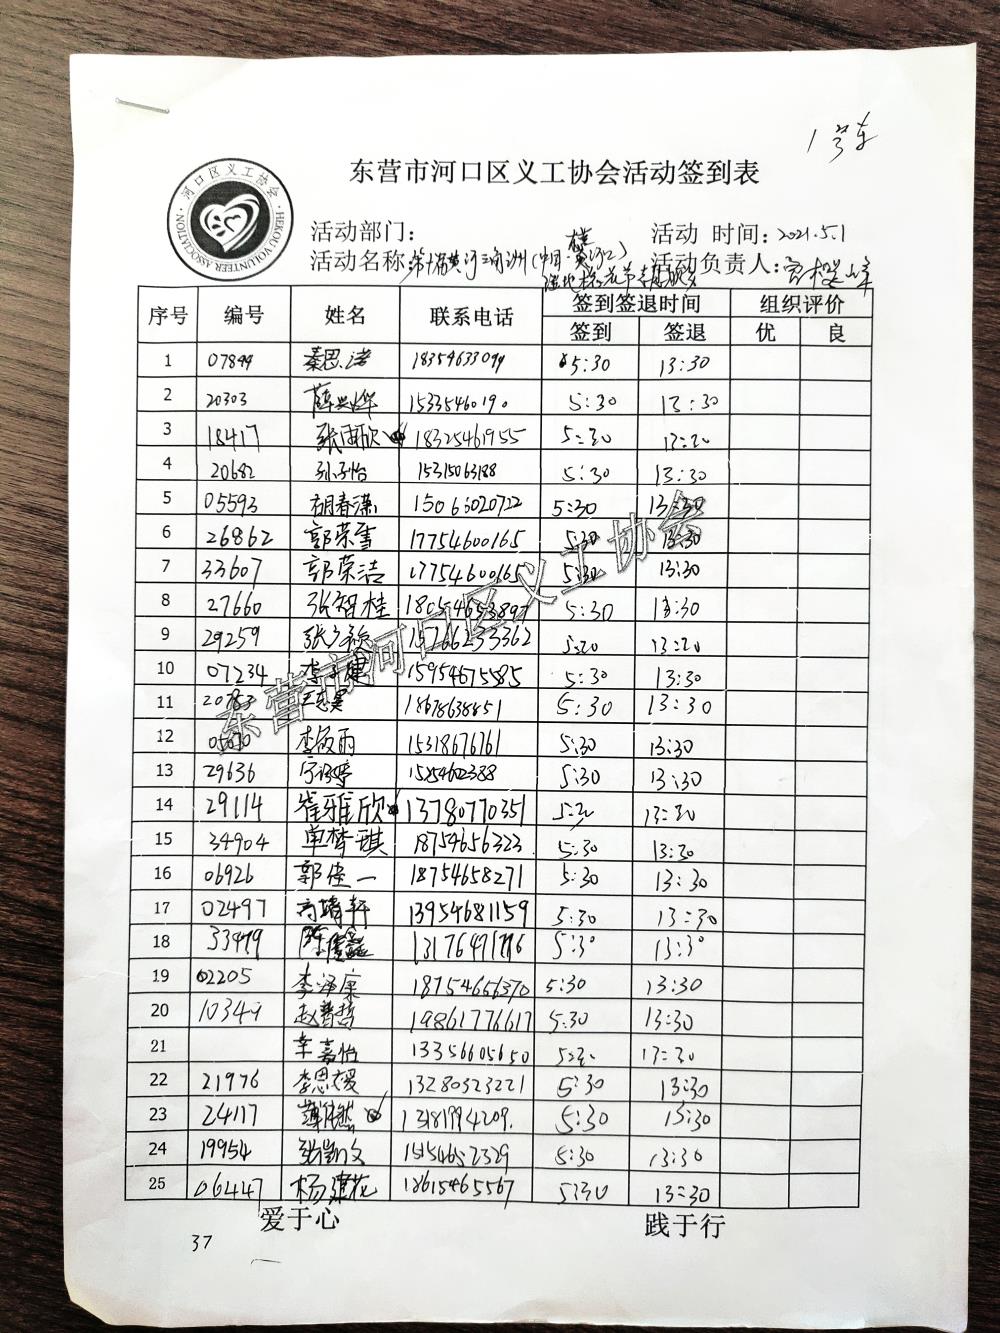 1号车
东营市河口区义工协会活动签到表
河口区义工协会
HEKOU VOLUNTEER ASSOCIATION
活动部门： 活动 时间：2021.5.1
活动名称： 活动负责人：
序号 编号 姓名 联系电话 签到签退时间 组织评价
签到 签退 优 良
1 秦思诺 5:30 13:30
2 20303 薛兴烨 15335460190 5:30 13:30
3 18417 张雨欣 18325461955 5:30 13:30
4 20682 孙子怡 15315063188 5:30 13:30
5 05593 胡春潇 15063020722 5:30 13:30
6 26862 郭荣雪 17754600165 5:30 13:30
7 33607 郭荣洁 17754600165 5:30 13:30
8 27660 张智桂 5:30 13:30
9 29259 15766233362 5:30 13:30
10 07234 李子健 15954675585 5:30 13:30
11 20783 18678638851 5:30 13:30
12 李筱雨 15318676761 5:30 13:30
13 29636 5:30 13:30
14 29114 崔雅欣 13780770351 5:30 13:30
15 34904 单梦琪 18754656323 5:30 13:30
16 06926 郭佳一 18754658271 5:30 13:30
17 02497 高靖轩 13954681159 5:30 13:30
18 33479 5:30 13:30
19 02205 李泽康 18754656370 5:30 13:30
20 10349 赵普哲 19861776617 5:30 13:30
21 辛嘉怡 13356605650 5:30 13:30
22 21976 李思媛 13280323221 5:30 13:30
23 24117 13181994209 5:30 13:30
24 19954 张凯文 15154652329 5:30 13:30
25 06447 杨建花 18615465567 5:30 13:30
东营市河口区义工协会
爱于心 践于行
37